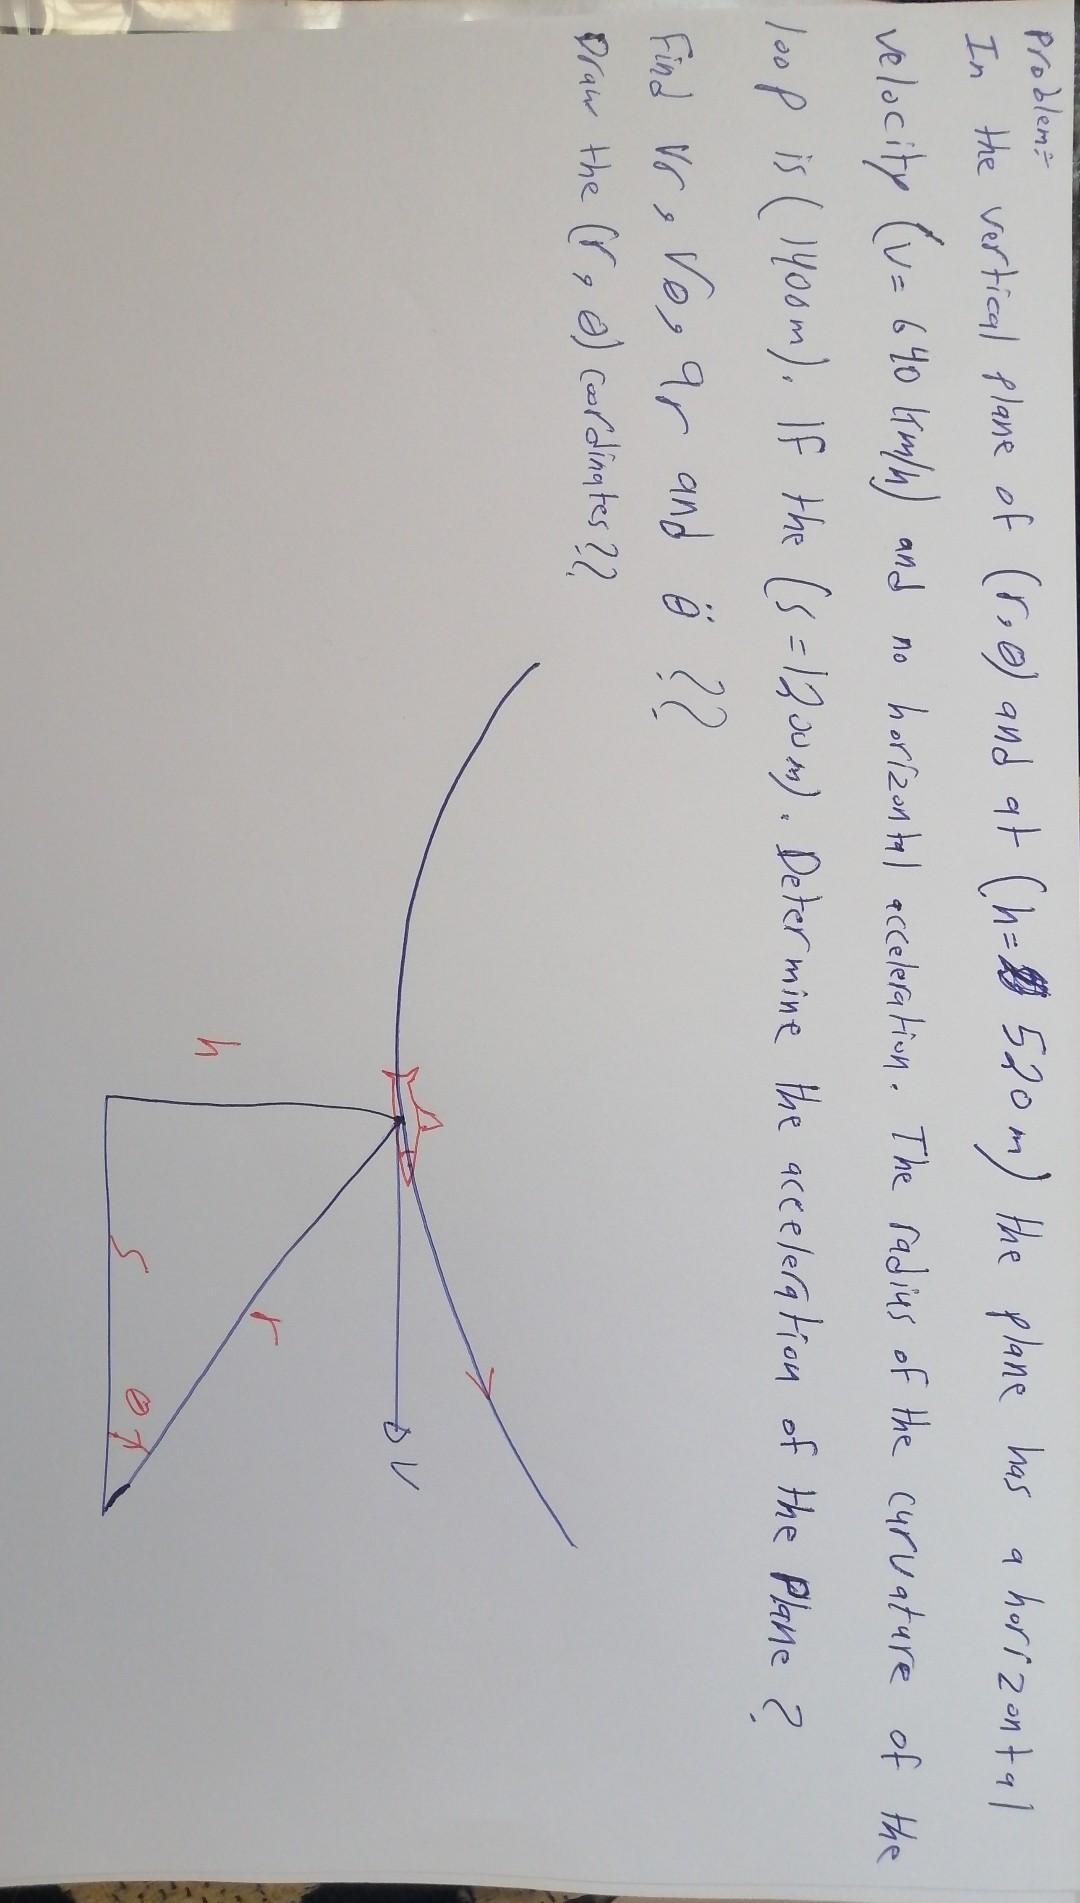 Problem:-
In the vertical plane of (r,θ) and at (h= 520 m) the plane has a horizontal
velocity (v= 640 km/h) and no horizontal acceleration. The radius of the curvature of the
loop is (1400m). If the (s =1200m). Determine the acceleration of the Plane ?
Find Vr, Vθ, ar and θ̈ ??
Draw the (r, θ) coordinates??
V
h
r
s
θ